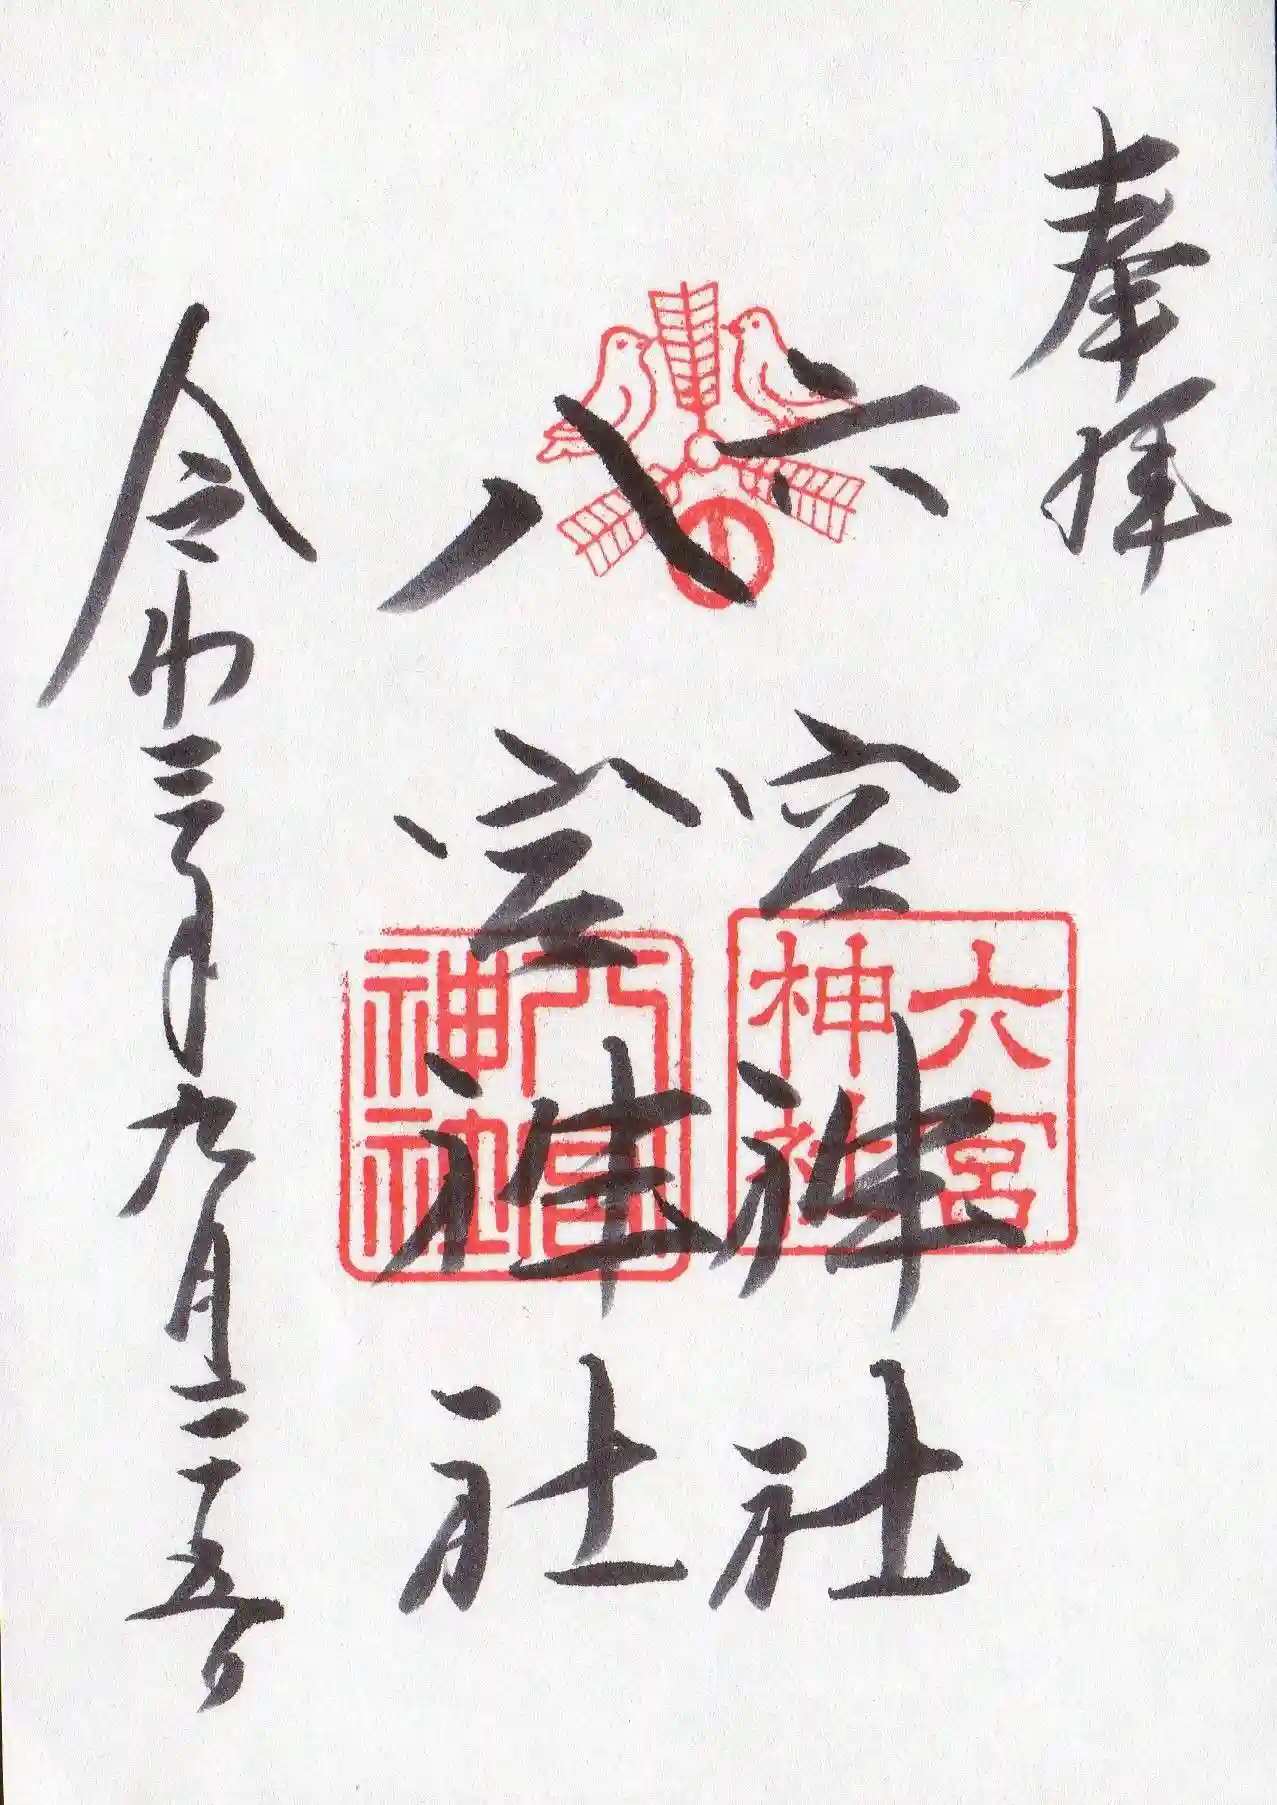 奉拝
六宮神社
八宮神社
令和三年九月二十五日
六宮
神社
八宮
神社